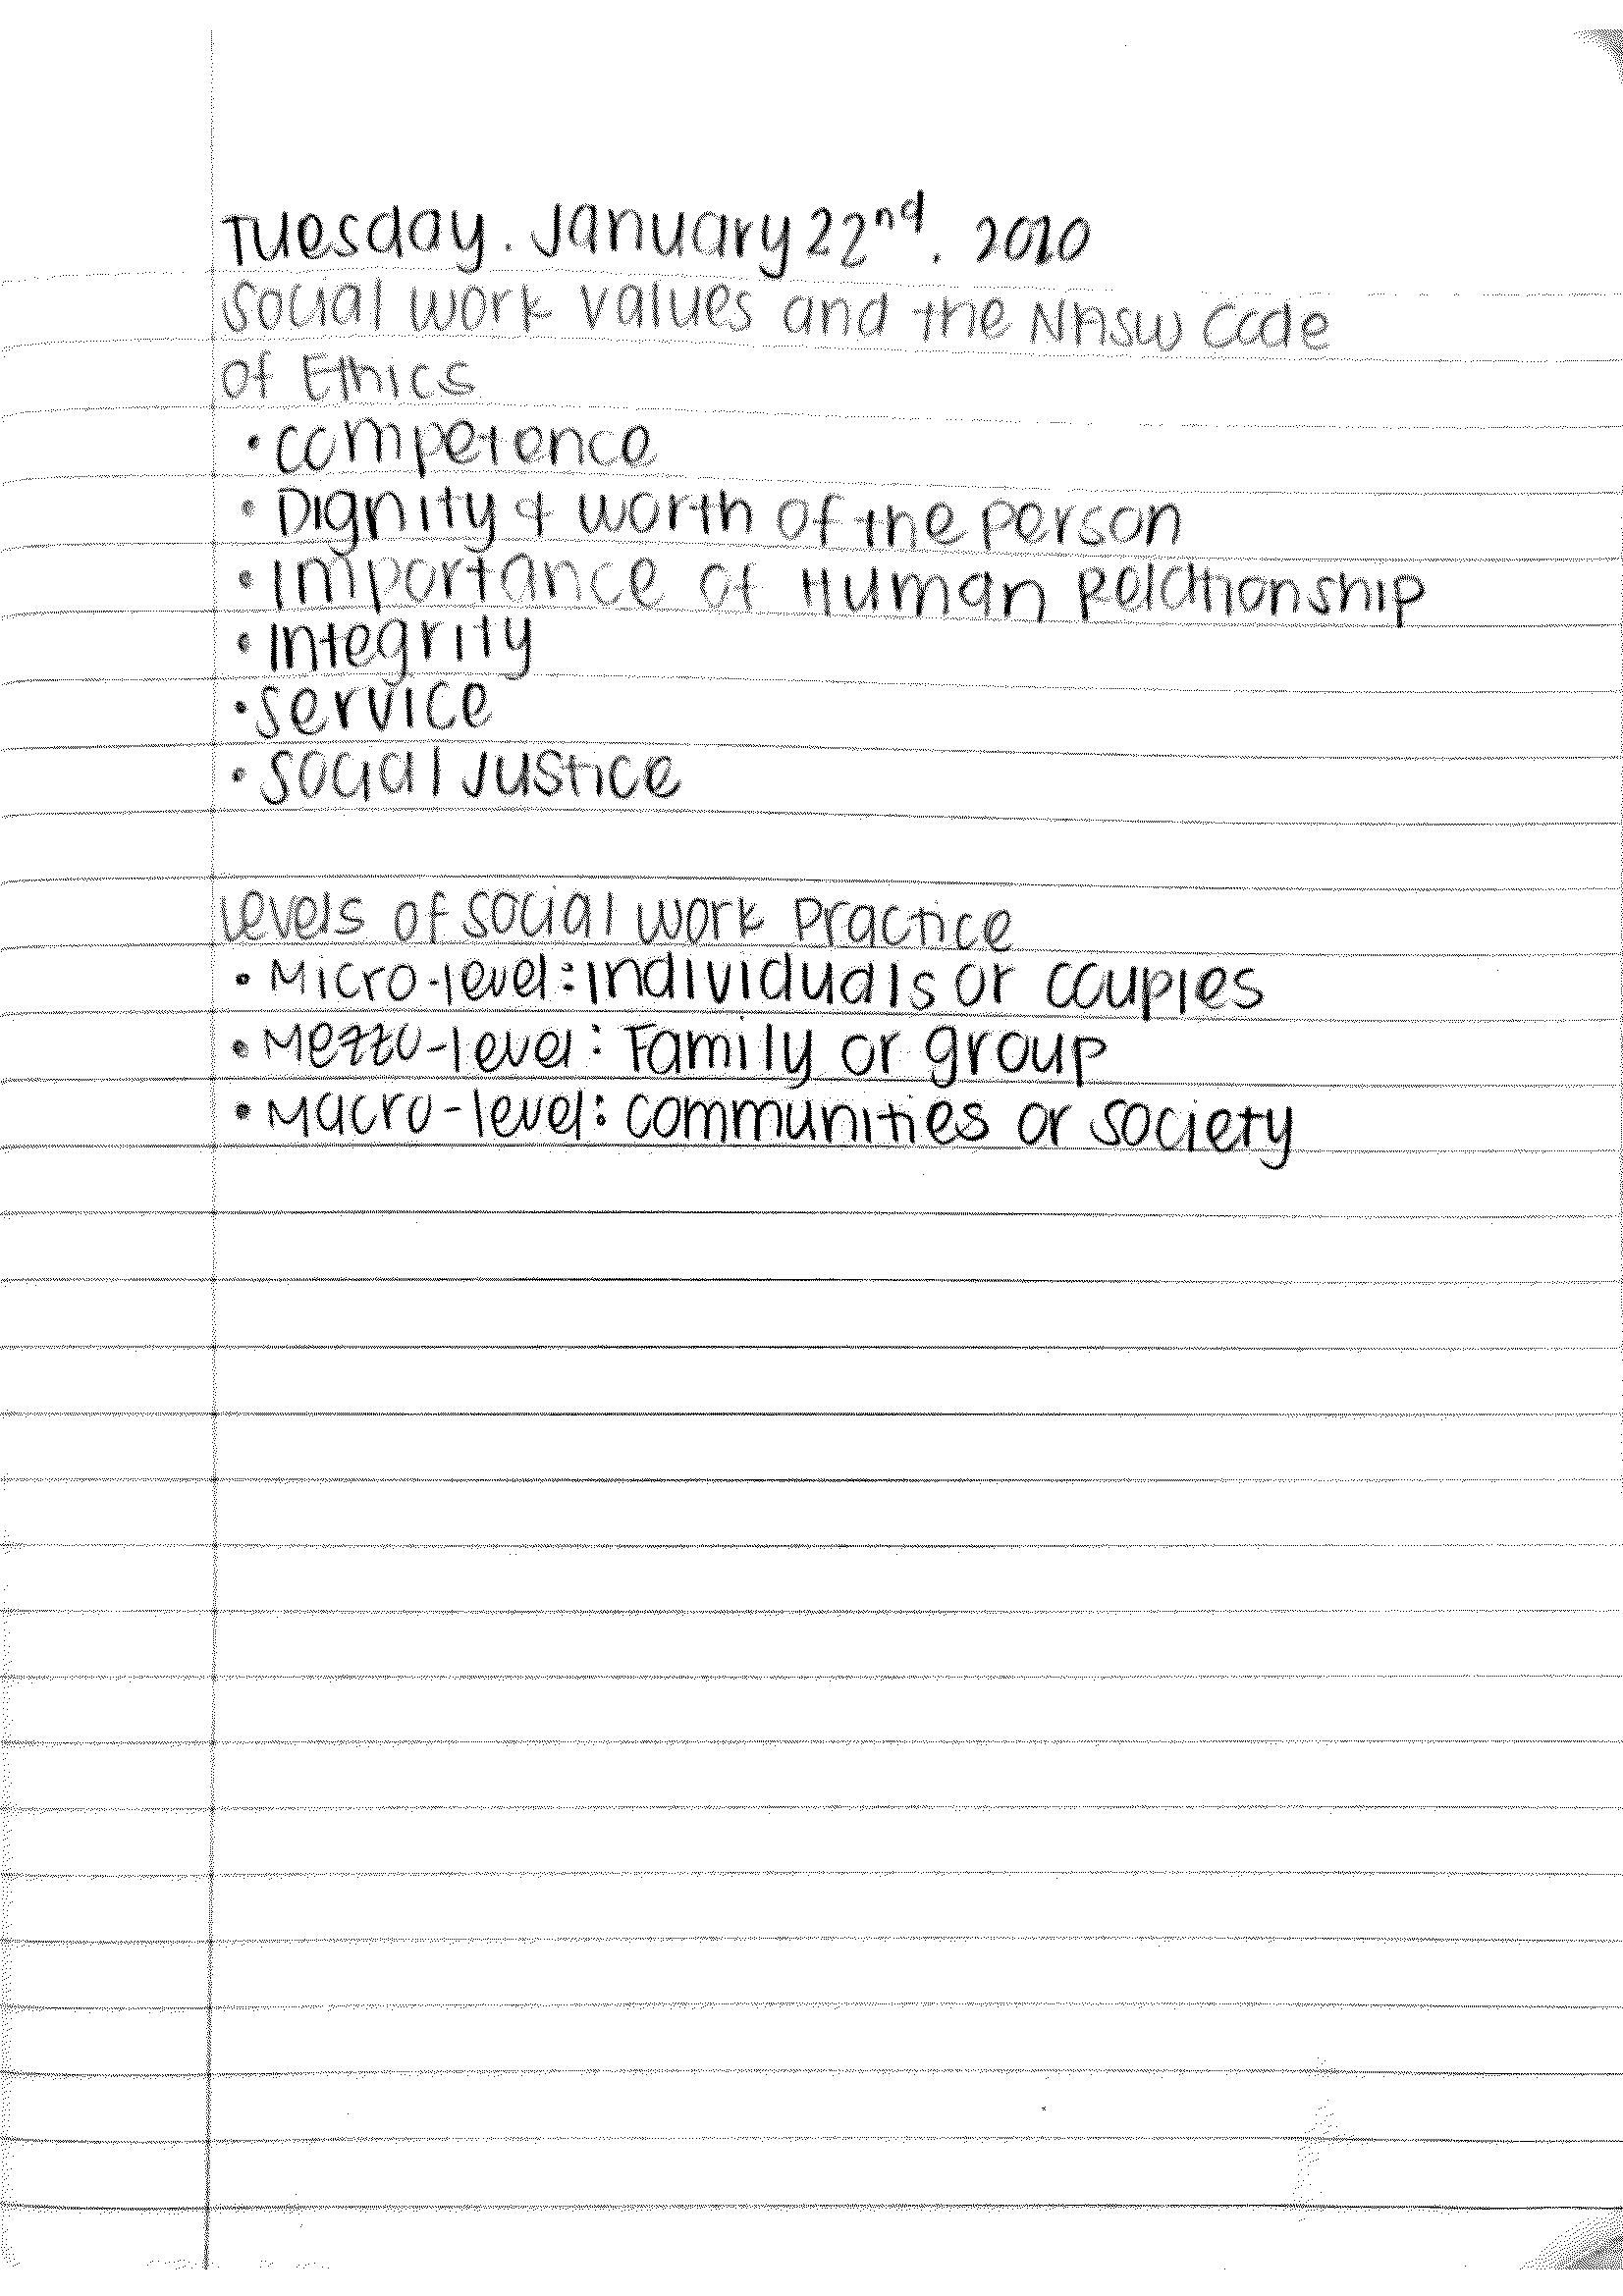 Tuesday. January 22nd. 2020
Social Work Values and the NASW Code
of Ethics
• Competence
• Dignity & worth of the person
• Importance of Human Relationship
• Integrity
• Service
• Social Justice
Levels of Social Work Practice
• Micro-level: Individuals or couples
• Mezzo-level: Family or group
• Macro-level: Communities or society